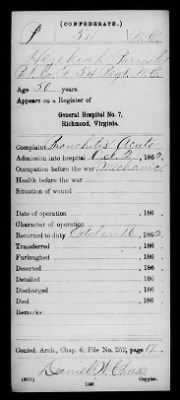 (CONFEDERATE.)
P 54 N.C.
Hezekiah Parrish
Pt. Co. G, 54 Regt. N.C.
Age 30 years
Appears on a Register of
General Hospital No. 7,
Richmond, Virginia.
Complaint Bronchitis Acute
Admission into hospital Oct. 2, 1862.
Occupation before the war Mechanic
Health before the war
Situation of wound
Date of operation , 186 .
Character of operation
Returned to duty October 16, 1862.
Transferred , 186 .
Furloughed , 186 .
Deserted , 186 .
Detailed , 186 .
Discharged , 186 .
Died , 186 .
Remarks:
Confed. Arch., Chap. 6, File No. 252, page
Daniel W. Chase
Copyist.